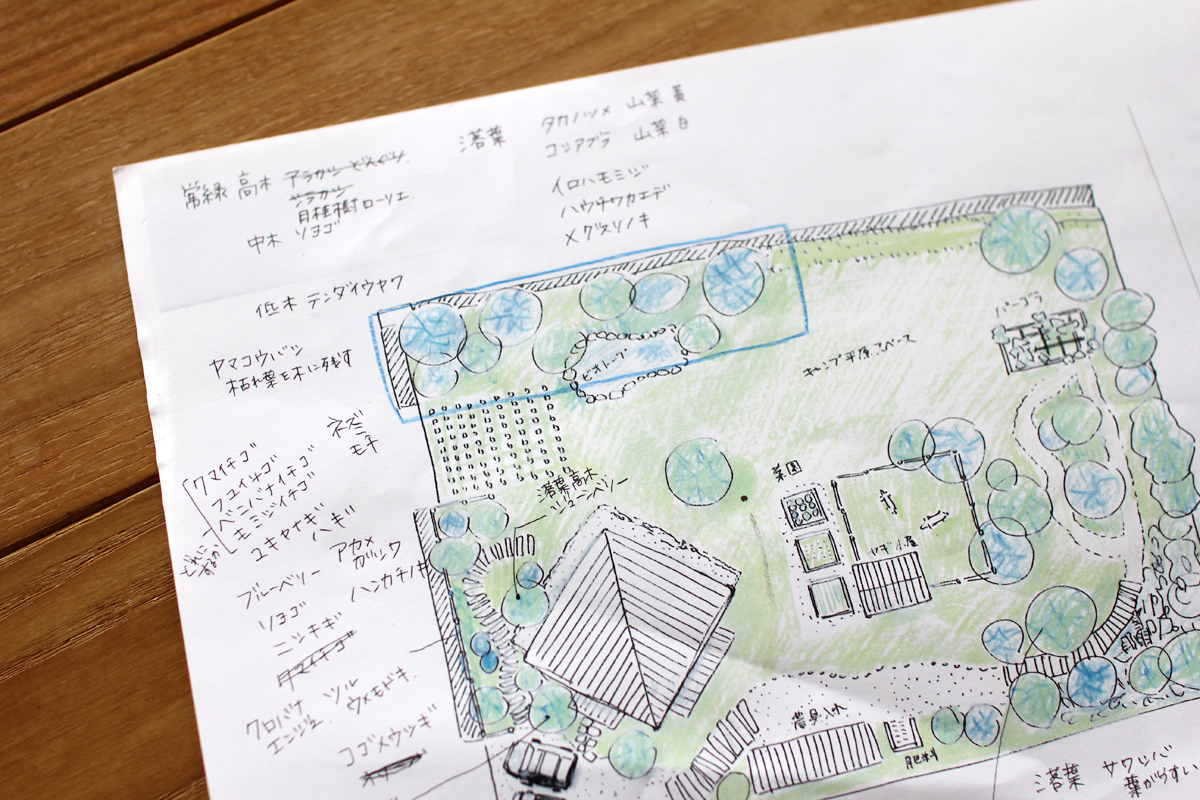 常緑 高木 アラカシ どんぐり
シラカシ
月桂樹ローリエ
中木 ソヨゴ
落葉 タカノツメ 山菜 黄
コシアブラ 山菜 白
イロハモミジ
ハウチワカエデ
メグスリノキ
低木 テンダイウヤク
ヤマコウバシ
枯れ葉を木に残す
ネズミ
モチ
クマイチゴ
フユイチゴ
ベニバナイチゴ
モミジイチゴ
ユキヤナギ ハギ
アカメ
ガシワ
ブルーベリー
ハンカチノキ
ソヨゴ
ニシキギ
ツル
ウメモドキ
クロバナ
エンジュ
コゴメウツギ
ビオトープ
キャンプ 平原 スペース
パーゴラ
落葉高木
ジューンベリー
菜園
ヤギ小屋
農具入れ
肥料
落葉 サワシバ
葉がうすい